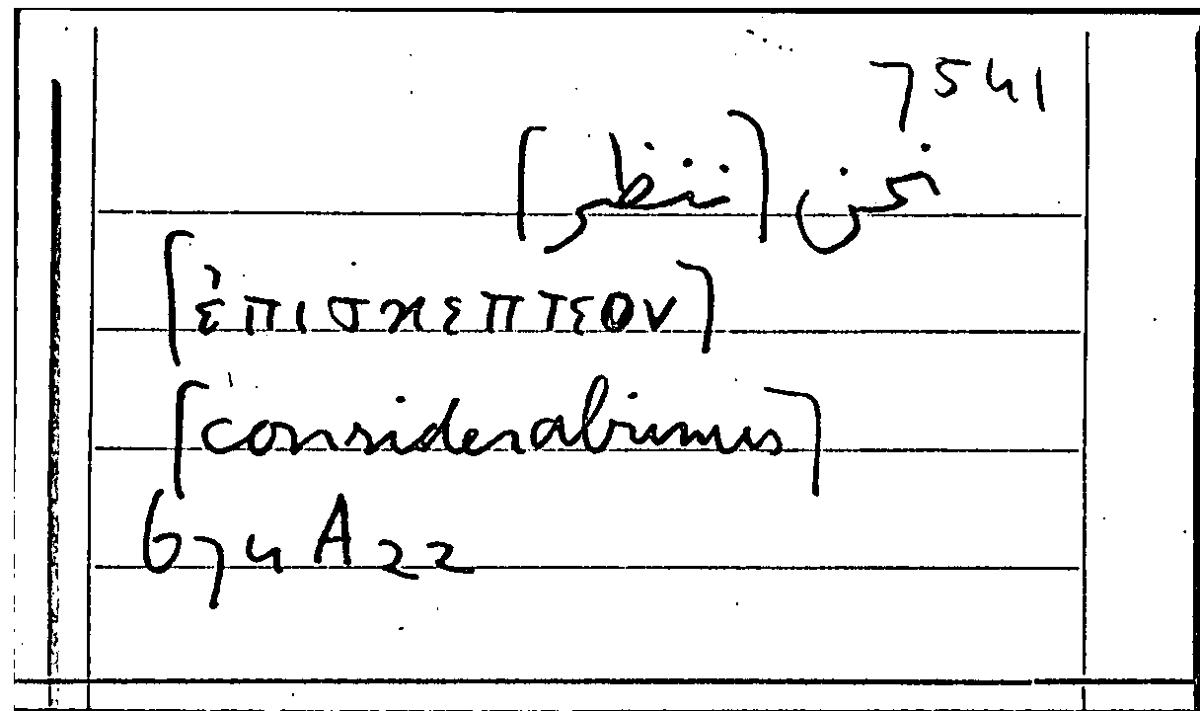 7541
نحن [ننظر]
[ἐπισκεπτεον]
[considerabimus]
674 A 22